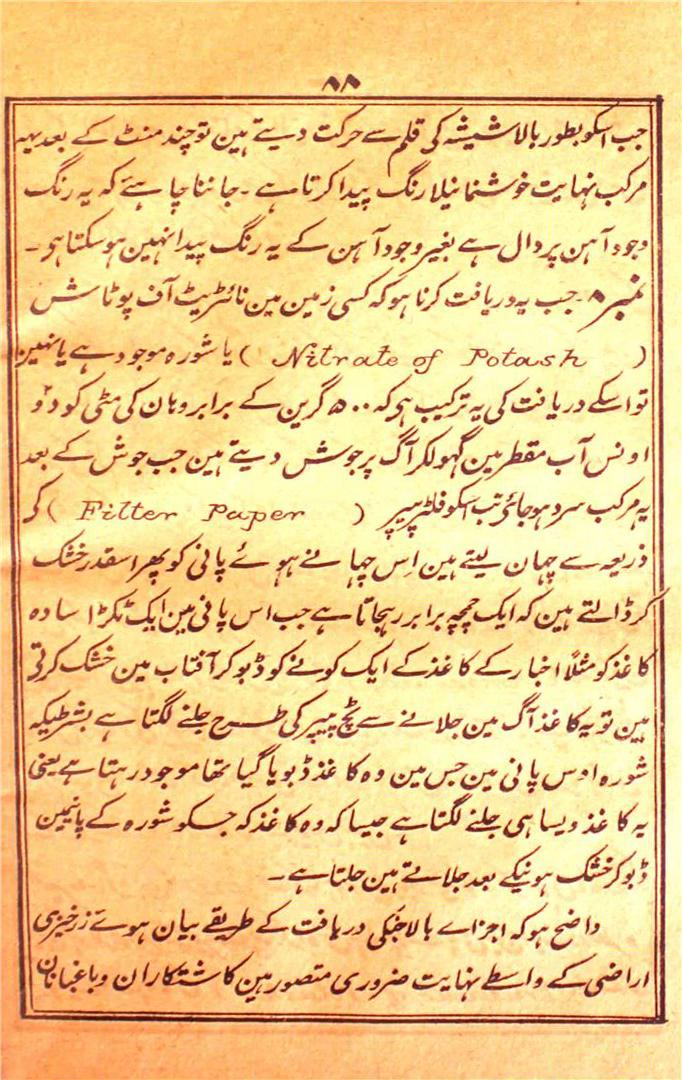 ۸۸
جب اسکو بطور بالا شیشہ کی قلم سے حرکت دیتے ہین تو چند منٹ کے بعد یہہ
مرکب نہایت خوشنما نیلا رنگ پیدا کرتا ہے ۔ جاننا چاہئے کہ یہ رنگ
وجود آہن پر دال ہے بغیر وجود آہن کے یہ رنگ پیدا نہین ہو سکتا ہی ۔
نمبر ۸ ۔ جب یہ دریافت کرنا ہو کہ کسی زمین مین نائٹریٹ آف پوٹاش
( Nitrate of Potash ) یا شورہ موجود ہے یا نہین
تو اسکے دریافت کی یہ ترکیب ہی کہ ۵۰۰ گرین کے برابر وہان کی مٹی کو دو
اونس آب مقطر مین گہولکر آگ پر جوش دیتے ہین جب جوش کے بعد
یہ مرکب سرد ہو جائی تب اسکو فلٹر پیپر ( Filter Paper ) کے
ذریعہ سے چہان لیتے ہین اِس چہانے ہوئے پانی کو پھر اسقدر خشک
کر ڈالتے ہین کہ ایک چمچہ برابر رہجاتا ہے جب اس پانی مین ایک ٹکڑا سادہ
کاغذ کو مثلاً اخبار کے کاغذ کے ایک کونے کو ڈبو کر آفتاب مین خشک کرتی
ہین تو یہ کاغذ آگ مین جلانے سے ٹچ پیپر کی طرح جلنے لگتا ہے بشرطیکہ
شورہ اوس پانی مین جس مین وہ کاغذ ڈبویا گیا تھا موجود رہتا ہے یعنی
یہ کاغذ ویسا ہی جلنے لگتا ہے جیسا کہ وہ کاغذ کہ جسکو شورہ کے پانیمین
ڈبو کر خشک ہونیکے بعد جلاتے ہین جلتا ہے ۔
واضح ہو کہ اجزاے بالا جنکی دریافت کے طریقے بیان ہوئے زرخیزی
اراضی کے واسطے نہایت ضروری متصور ہین کاشتکاران و باغبانان